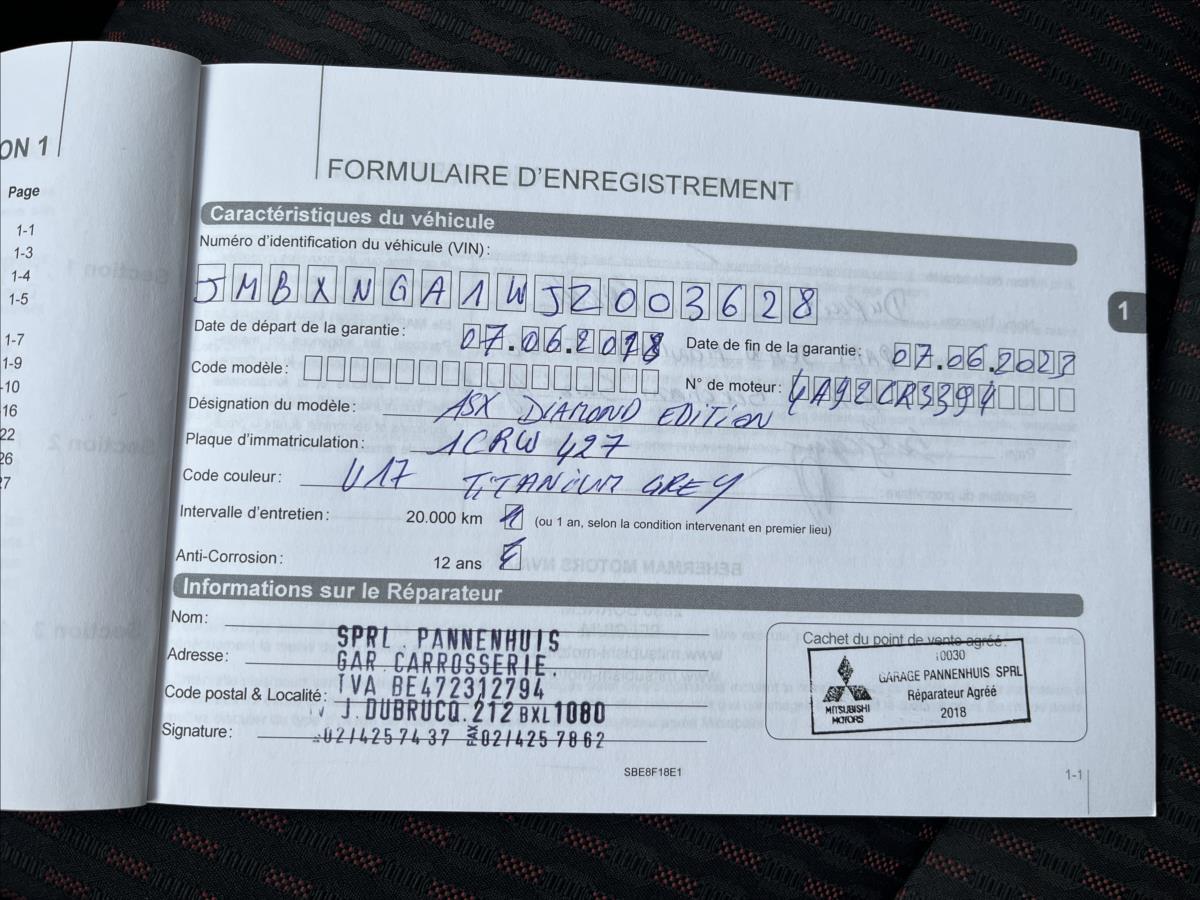 ON 1
Page
1-1
1-3
1-4
1-5
1-7
1-9
-10
-16
22
26
27
FORMULAIRE D'ENREGISTREMENT
Caractéristiques du véhicule
Numéro d'identification du véhicule (VIN):
JMBXNGA1WJZ003628
Date de départ de la garantie: 07.06.2018 Date de fin de la garantie: 07.06.2023
Code modèle: N° de moteur: 4A92CR3394
Désignation du modèle: ASX DIAMOND EDITION
Plaque d'immatriculation: 1CRW 427
Code couleur: U17 TITANIUM GREY
Intervalle d'entretien: 20.000 km (ou 1 an, selon la condition intervenant en premier lieu)
Anti-Corrosion: 12 ans
Informations sur le Réparateur
Nom:
SPRL. PANNENHUIS
Adresse: GAR CARROSSERIE.
Code postal & Localité: TVA BE472312794
J DUBRUCQ.212 BXL 1080
Signature: 02/425 74 37 FAX 02/425 78 62
Cachet du point de vente agréé:
10030
GARAGE PANNENHUIS SPRL
Réparateur Agréé
2018
MITSUBISHI
MOTORS
SBE8F18E1
1-1
1